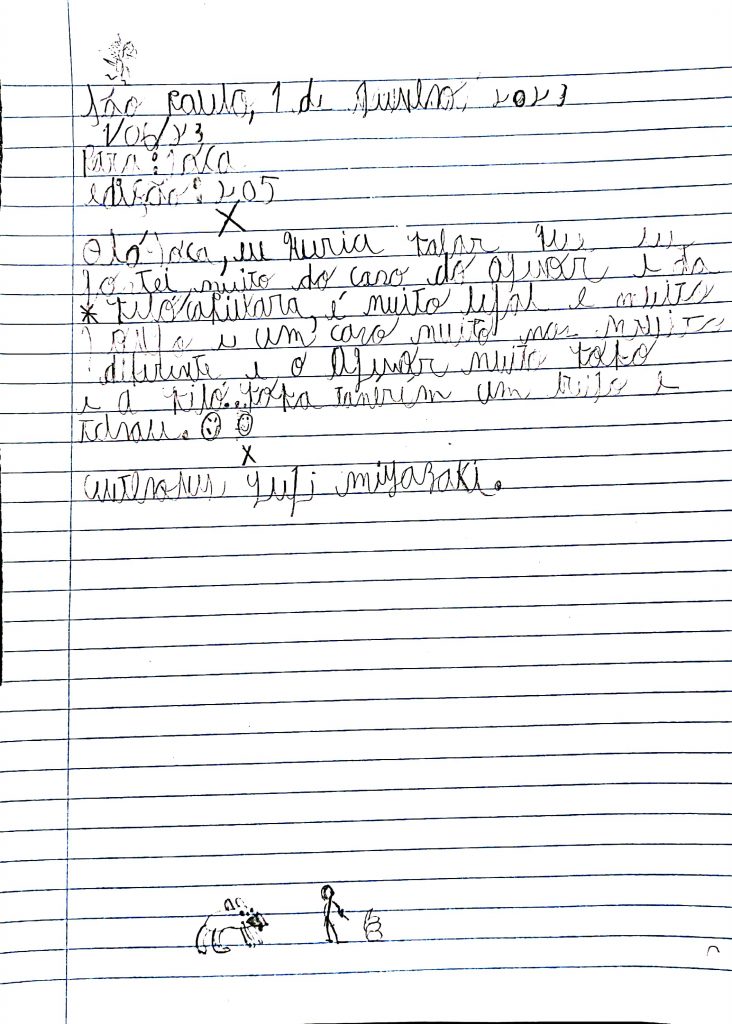 São Paulo, 1 de Junho, 2023
1/06/23
Para: Joca
edição: 205
X
Olá Joca, eu queria falar que eu
gostei muito do caso do Agenor e da
* filó capivara, é muito legal e muito
e um caso muito mas muito
diferente e o Agenor muito fofo
e a filó.. fofa também um beijo e
tchau.
X
Yufi miyazaki.